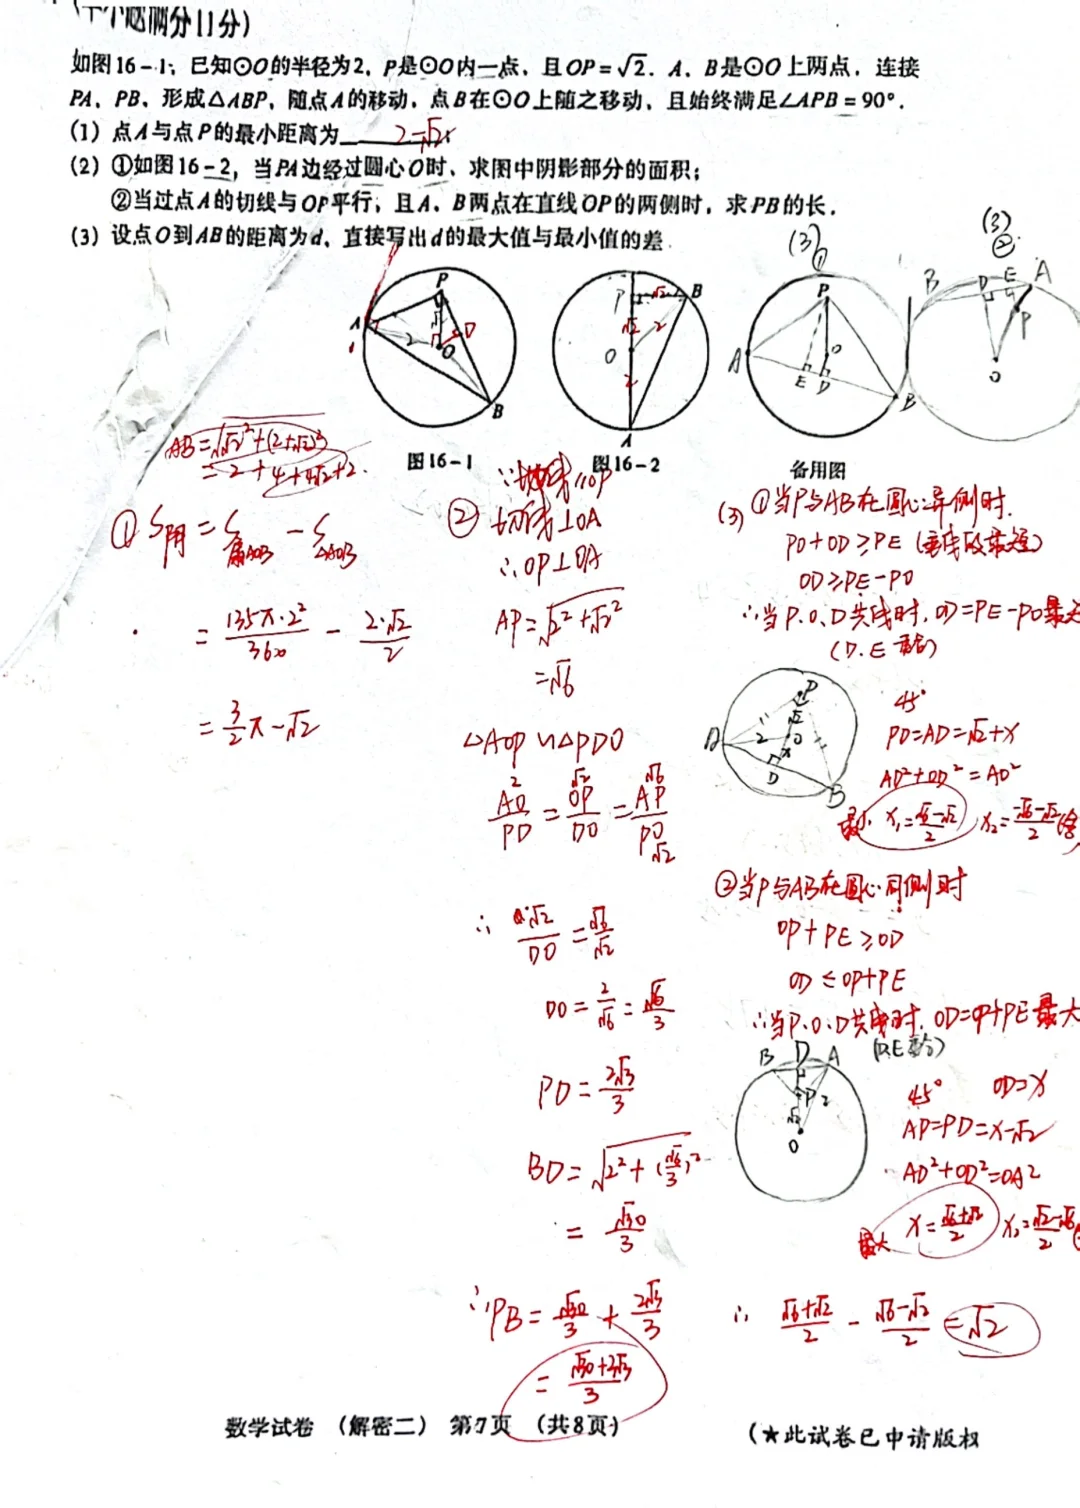 (本小题满分11分)
如图16-1,已知⊙O的半径为2,P是⊙O内一点,且OP=√2.A、B是⊙O上两点,连接
PA、PB,形成△ABP,随点A的移动,点B在⊙O上随之移动,且始终满足∠APB=90°.
(1)点A与点P的最小距离为 2-√2
(2)①如图16-2,当PA边经过圆心O时,求图中阴影部分的面积;
②当过点A的切线与OP平行,且A、B两点在直线OP的两侧时,求PB的长.
(3)设点O到AB的距离为d,直接写出d的最大值与最小值的差.
P
A
O
B
D
2
图16-1
P
√2
B
√2
2
O
2
A
图16-2
(3)①
P
A
O
E D
B
备用图
(3)②
B D E A
P
O
AB=√(√2²+(2+√2)²)
=2+4+4√2+2
① S阴=S扇AOB-S△AOB
=135π·2²/360-2·√2/2
=3/2π-√2
∵切线∥OP
② 切线⊥OA
∴OP⊥OA
AP=√(2²+√2²)
=√6
△AOP∽△PDO
AO/PD=OP/DO=AP/PO
2 √2 √6
√2
∴ √2/DO=√6/√2
DO=2/√6=√6/3
PD=2√3/3
BD=√(2²+(√6/3)²)
=√30/3
∴PB=√30/3+2√3/3
=(√30+2√3)/3
(3)①当P与AB在圆心异侧时.
PO+OD≥PE(垂线段最短)
OD≥PE-PO
∴当P.O.D共线时,OD=PE-PO最
(D.E重合)
P
√2
2 O
x
D
B
45°
PD=AD=√2+x
AD²+OD²=AO²
最小 x₁=(√6-√2)/2 x₂=(-√6-√2)/2(舍
②当P与AB在圆心同侧时
OP+PE≥OD
OD≤OP+PE
∴当P.O.D共线时,OD=OP+PE最大
(D.E重合)
B D A
P 2
√2
O
45° OD=x
AD=PD=x-√2
AD²+OD²=OA²
最大 x=(√6+√2)/2 x₂=(√2-√6)/2
∴ (√6+√2)/2-(√6-√2)/2=√2
数学试卷 (解密二) 第7页 (共8页)
(★此试卷已申请版权